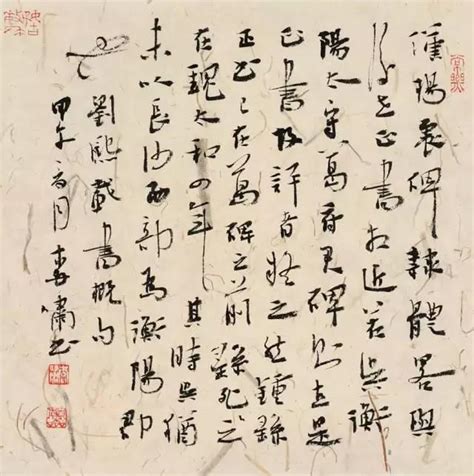 漢楊震碑隸體略與
後世正書相近若吳衡
陽太守葛府君碑則直是
正書故評者疑之然鍾繇
正書已在葛碑之前繇死之
在魏太和四年其時吳猶
未以長沙西部為衡陽郡
也
劉熙載書概句
甲午月書